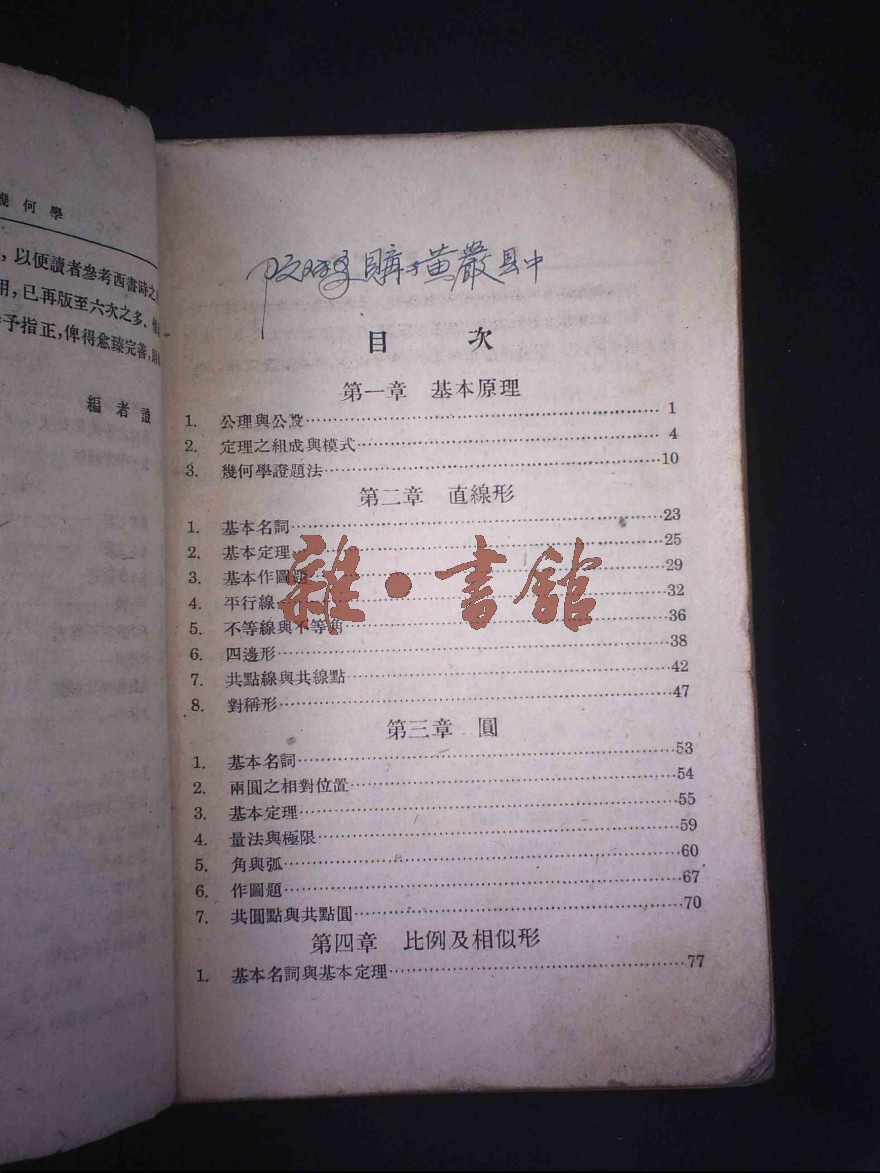 幾何學
，以便讀者參考西書時之
用，已再版至六次之多．
予指正，俾得愈臻完善，
編者識
購于黃巖縣中
目次
第一章 基本原理
1. 公理與公設 1
2. 定理之組成與模式 4
3. 幾何學證題法 10
第二章 直線形
1. 基本名詞 23
2. 基本定理 25
3. 基本作圖題 29
4. 平行線 32
5. 不等線與不等角 36
6. 四邊形 38
7. 共點線與共線點 42
8. 對稱形 47
雜·書館
第三章 圓
1. 基本名詞 53
2. 兩圓之相對位置 54
3. 基本定理 55
4. 量法與極限 59
5. 角與弧 60
6. 作圖題 67
7. 共圓點與共點圓 70
第四章 比例及相似形
1. 基本名詞與基本定理 77